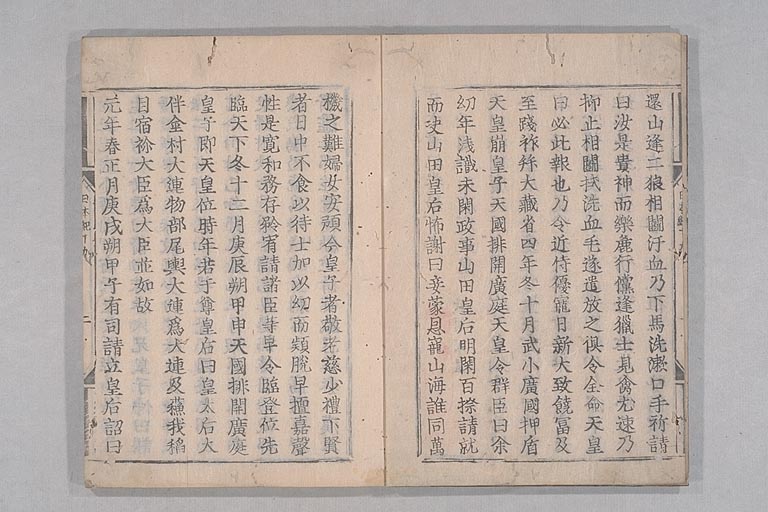 還山逢二狼相鬪汙血乃下馬洗漱口手祈請
曰汝是貴神而樂麁行儻逢獵士見禽尤速乃
抑止相鬪拭洗血毛遂遣放之俱令全命天皇
曰必此報也乃令近侍優寵日新大致饒冨及
至踐祚拜大藏省四年冬十月武小廣國押盾
天皇崩皇子天國排開廣庭天皇令群臣曰余
幼年浅識未閑政事山田皇后明閑百揆請就
而决山田皇后怖謝曰妾蒙恩寵山海詎同萬
機之難婦女安預今皇子者敬老慈少禮下賢
者日中不食以待士加以幼而頴脱早擅嘉聲
性是寛和務存矜宥請諸臣等早令臨登位光
臨天下冬十二月庚辰朔甲申天國排開廣庭
皇子即天皇位時年若干尊皇后曰皇太后大
伴金村大連物部尾輿大連爲大連及蘇我稻
目宿祢大臣爲大臣並如故
元年春正月庚戌朔甲子有司請立皇后詔曰